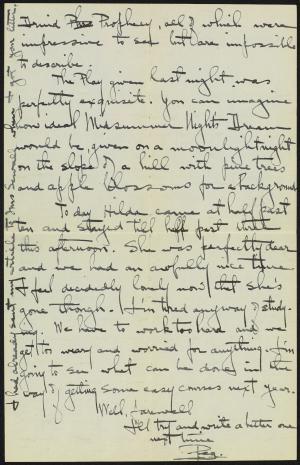 Druid Prophecy, all of which were
impressive to see but are impossible
to describe.
The Play given last night was
perfectly exquisite. You can imagine
how ideal Midsummer Nights Dream
would be, given on a moonlight night
on the slope of a hill with pine trees
and apple blossoms for a background
To day Hilda came at half past
ten and stayed till half past three
this afternoon. She was perfectly dear
and we had an awfully nice time.
I feel decidedly lonely now that She's
gone though. I'm tired anyway of study-
ing. We have to work too hard and we
get too weary and worried for anything. I'm
going to see what can be done in the
way of getting some easy courses next year.
Well, farewell
I'll try and write a better one
next time
Peg.
I had already sent my article to Mrs. when I got your letter.